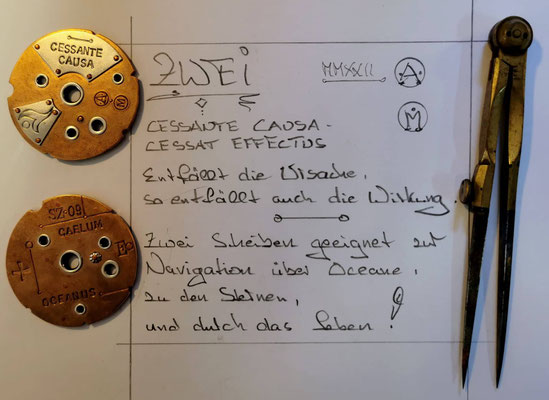 CESSANTE
CAUSA
A
M
SZ-09
CAELUM
OCEANUS
ZWEi
MMXXII
A
M
CESSANTE CAUSA-
CESSAT EFFECTUS
Entfällt die Ursache,
so entfällt auch die Wirkung.
Zwei Scheiben geeignet zur
Navigation über Oceane,
zu den Sternen,
und durch das Leben!